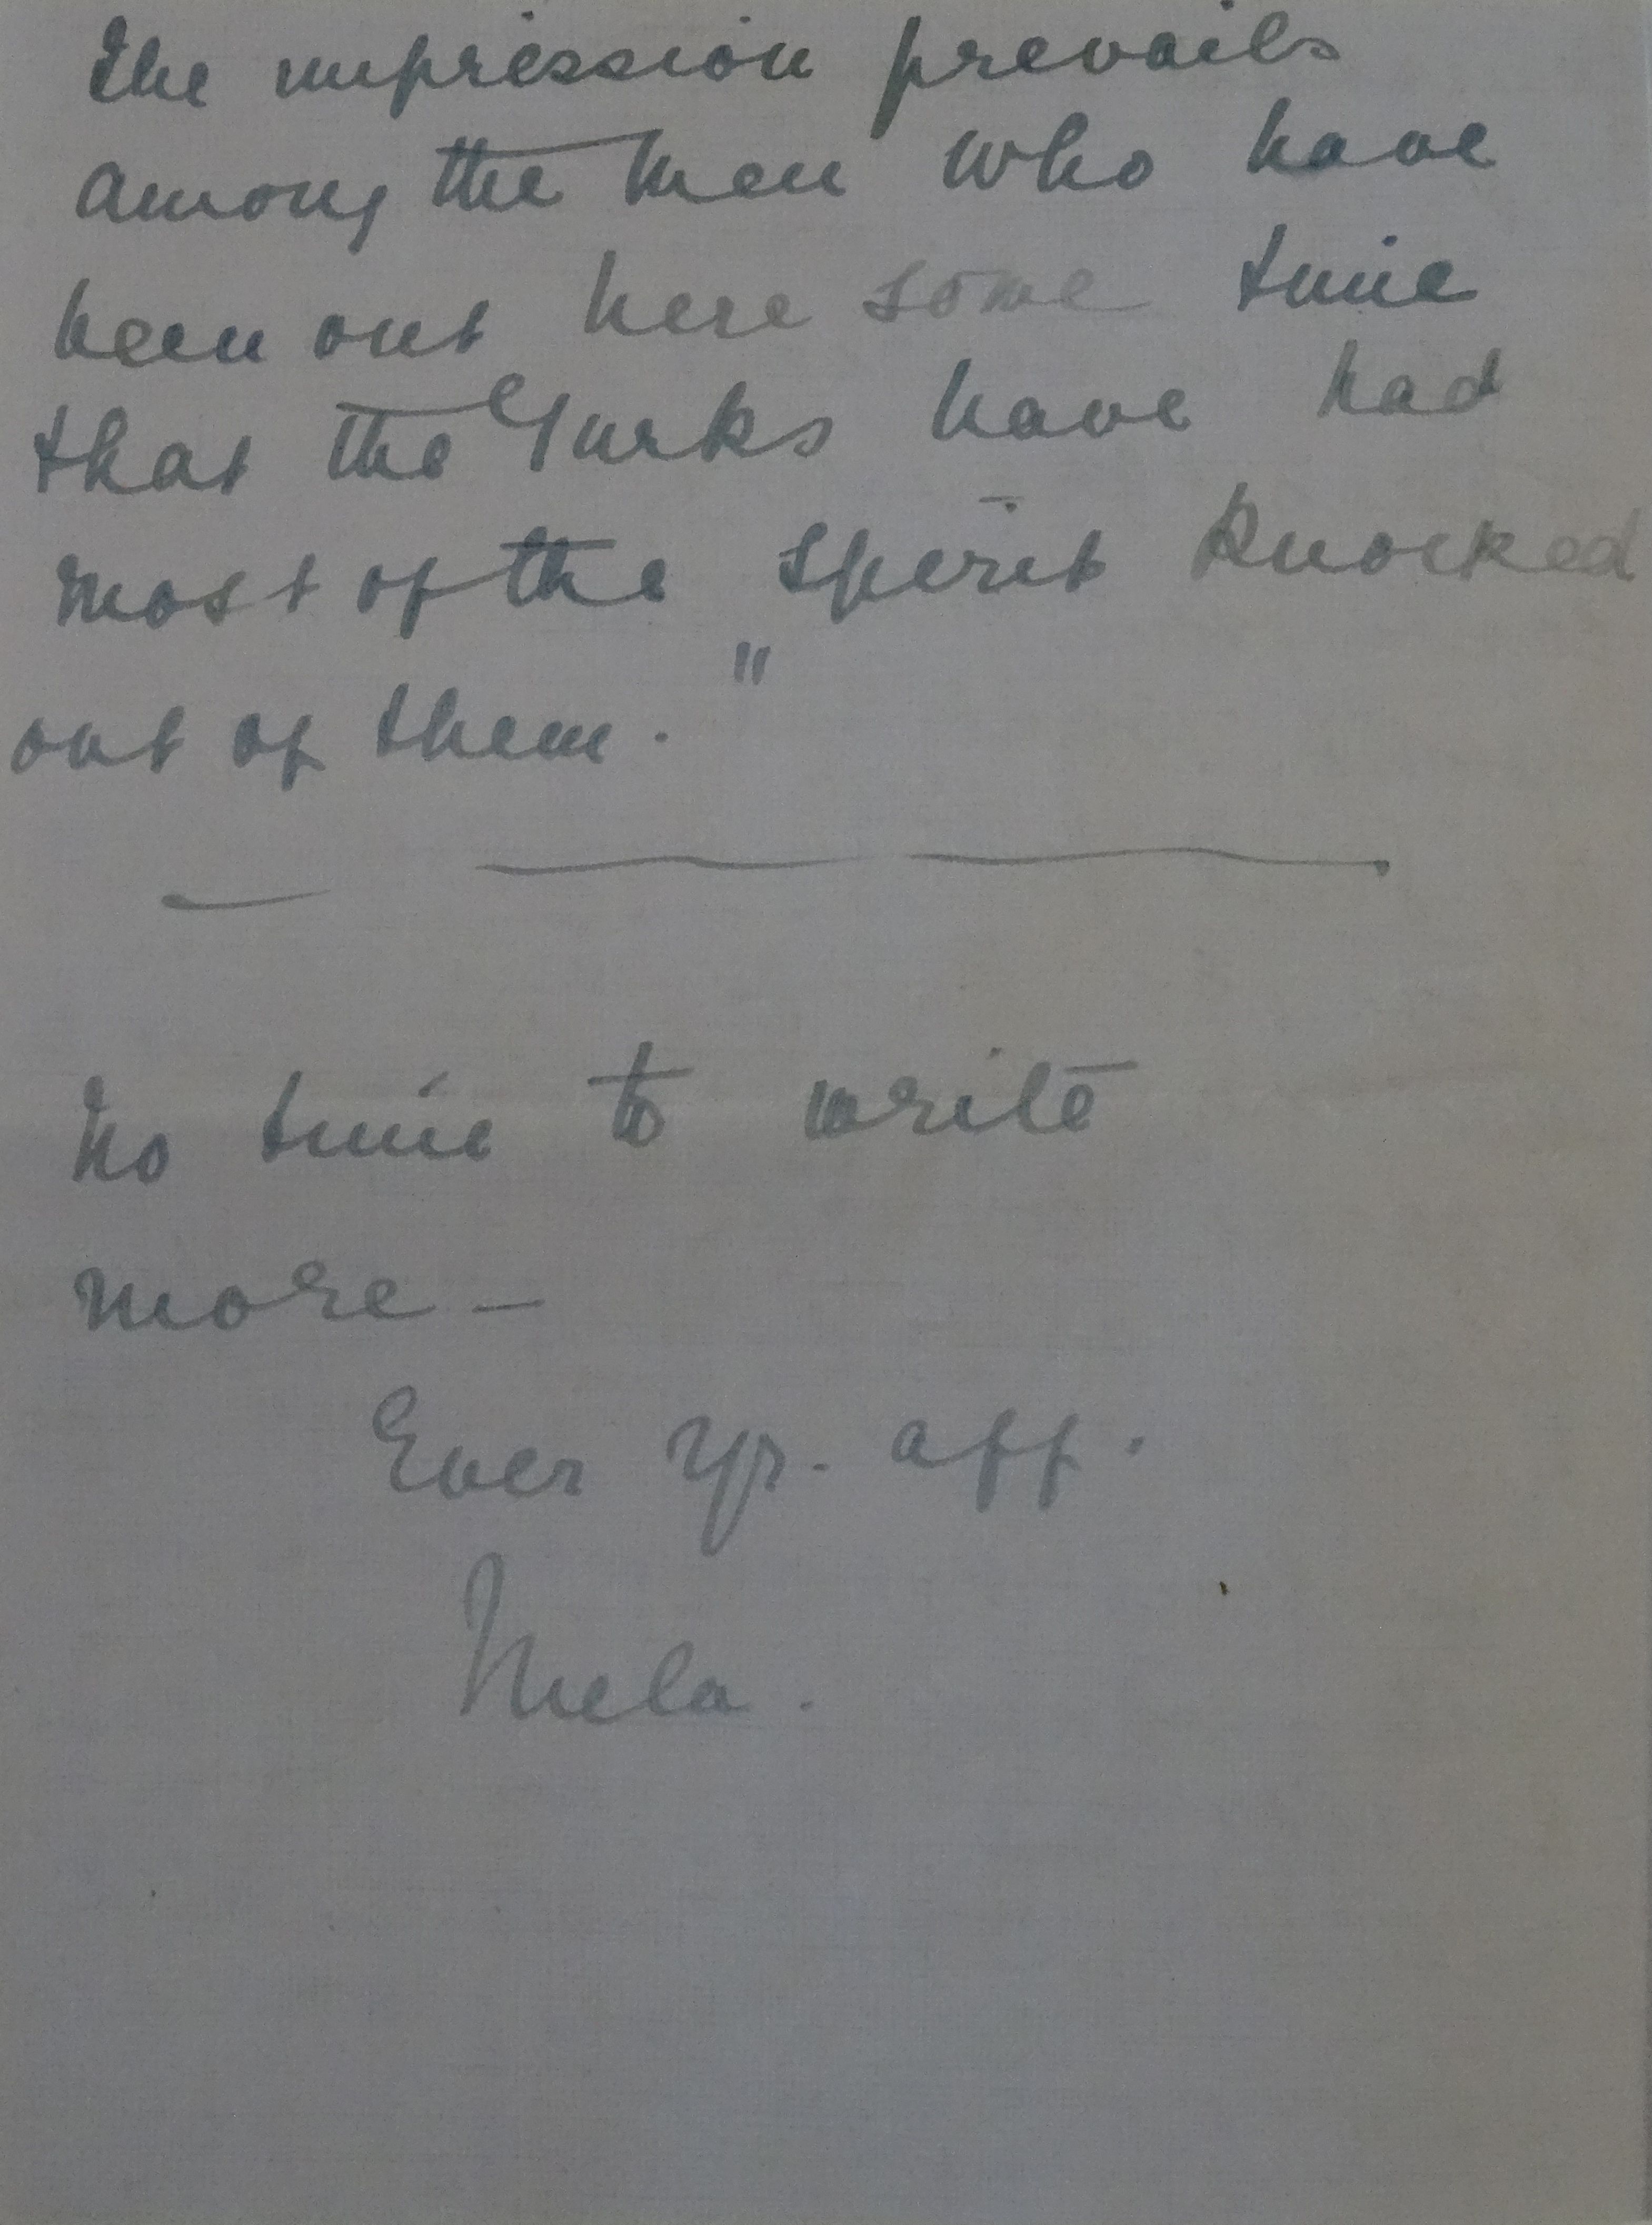 The impression prevails
among the men who have
been out here some time
that the Turks have had
most of the spirit knocked
out of them."
No time to write
more –
Ever yr. aff.
Mela.